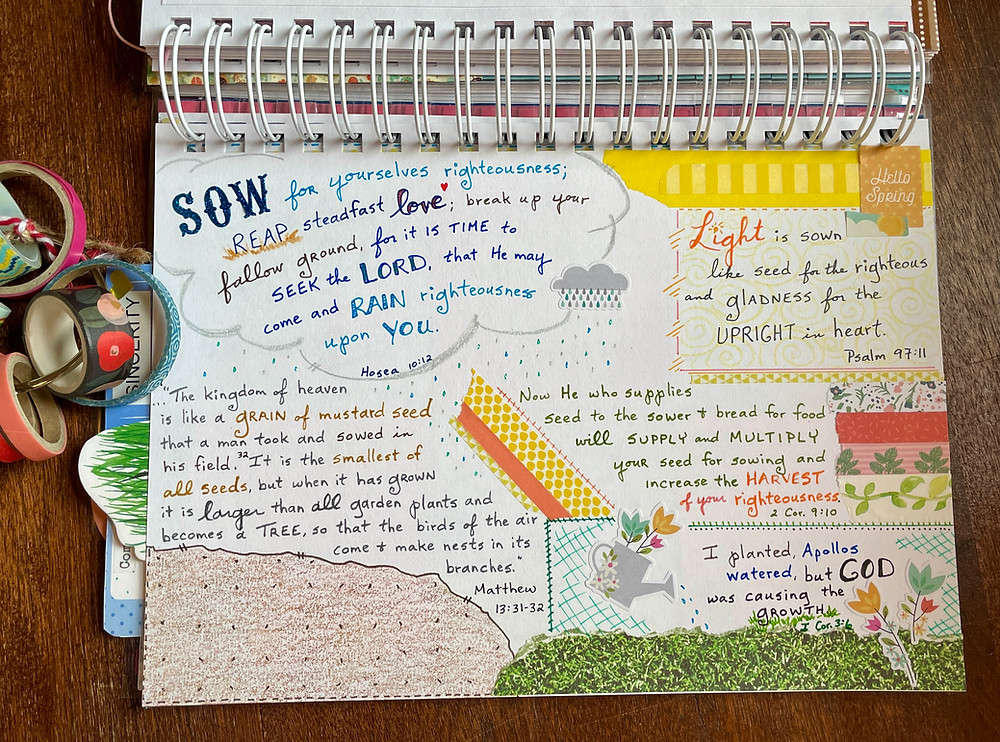 SOW for yourselves righteousness;
REAP steadfast love; break up your
fallow ground, for it IS TIME to
SEEK the LORD, that He may
come and RAIN righteousness
upon YOU.
Hosea 10:12
Hello
Spring
Light is sown
like seed for the righteous
and glADNESS for the
UPRIGHT in heart.
Psalm 97:11
"The kingdom of heaven
is like a GRAIN of mustard seed
that a man took and sowed in
his field. 32 It is the smallest of
all seeds, but when it has GROWN
it is larger than all garden plants and
becomes a TREE, so that the birds of the air
come + make nests in its
branches."
Matthew
13:31-32
Now He who supplies
seed to the sower + bread for food
will SUPPLY and MULTIPLY
your seed for sowing and
increase the HARVEST
of your righteousness.
2 Cor. 9:10
I planted, Apollos
watered, but GOD
was causing the
GROWTH.
I Cor. 3:6
SINCERITY